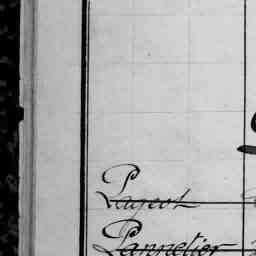 Pageot
Pannetier